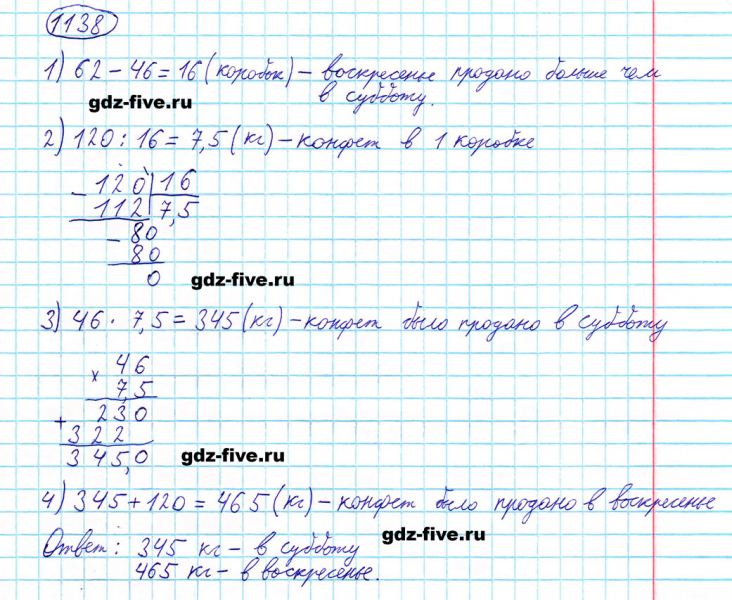 1138
1) 62 – 46 = 16 (коробок) – воскресенье продано больше чем
в субботу.
gdz-five.ru
2) 120 : 16 = 7,5 (кг) – конфет в 1 коробке
– 120 | 16
112 | 7,5
– 80
80
0
gdz-five.ru
3) 46 · 7,5 = 345 (кг) – конфет было продано в субботу
× 46
7,5
+ 230
322
345,0
gdz-five.ru
4) 345 + 120 = 465 (кг) – конфет было продано в воскресенье
gdz-five.ru
Ответ: 345 кг – в субботу
465 кг – в воскресенье.